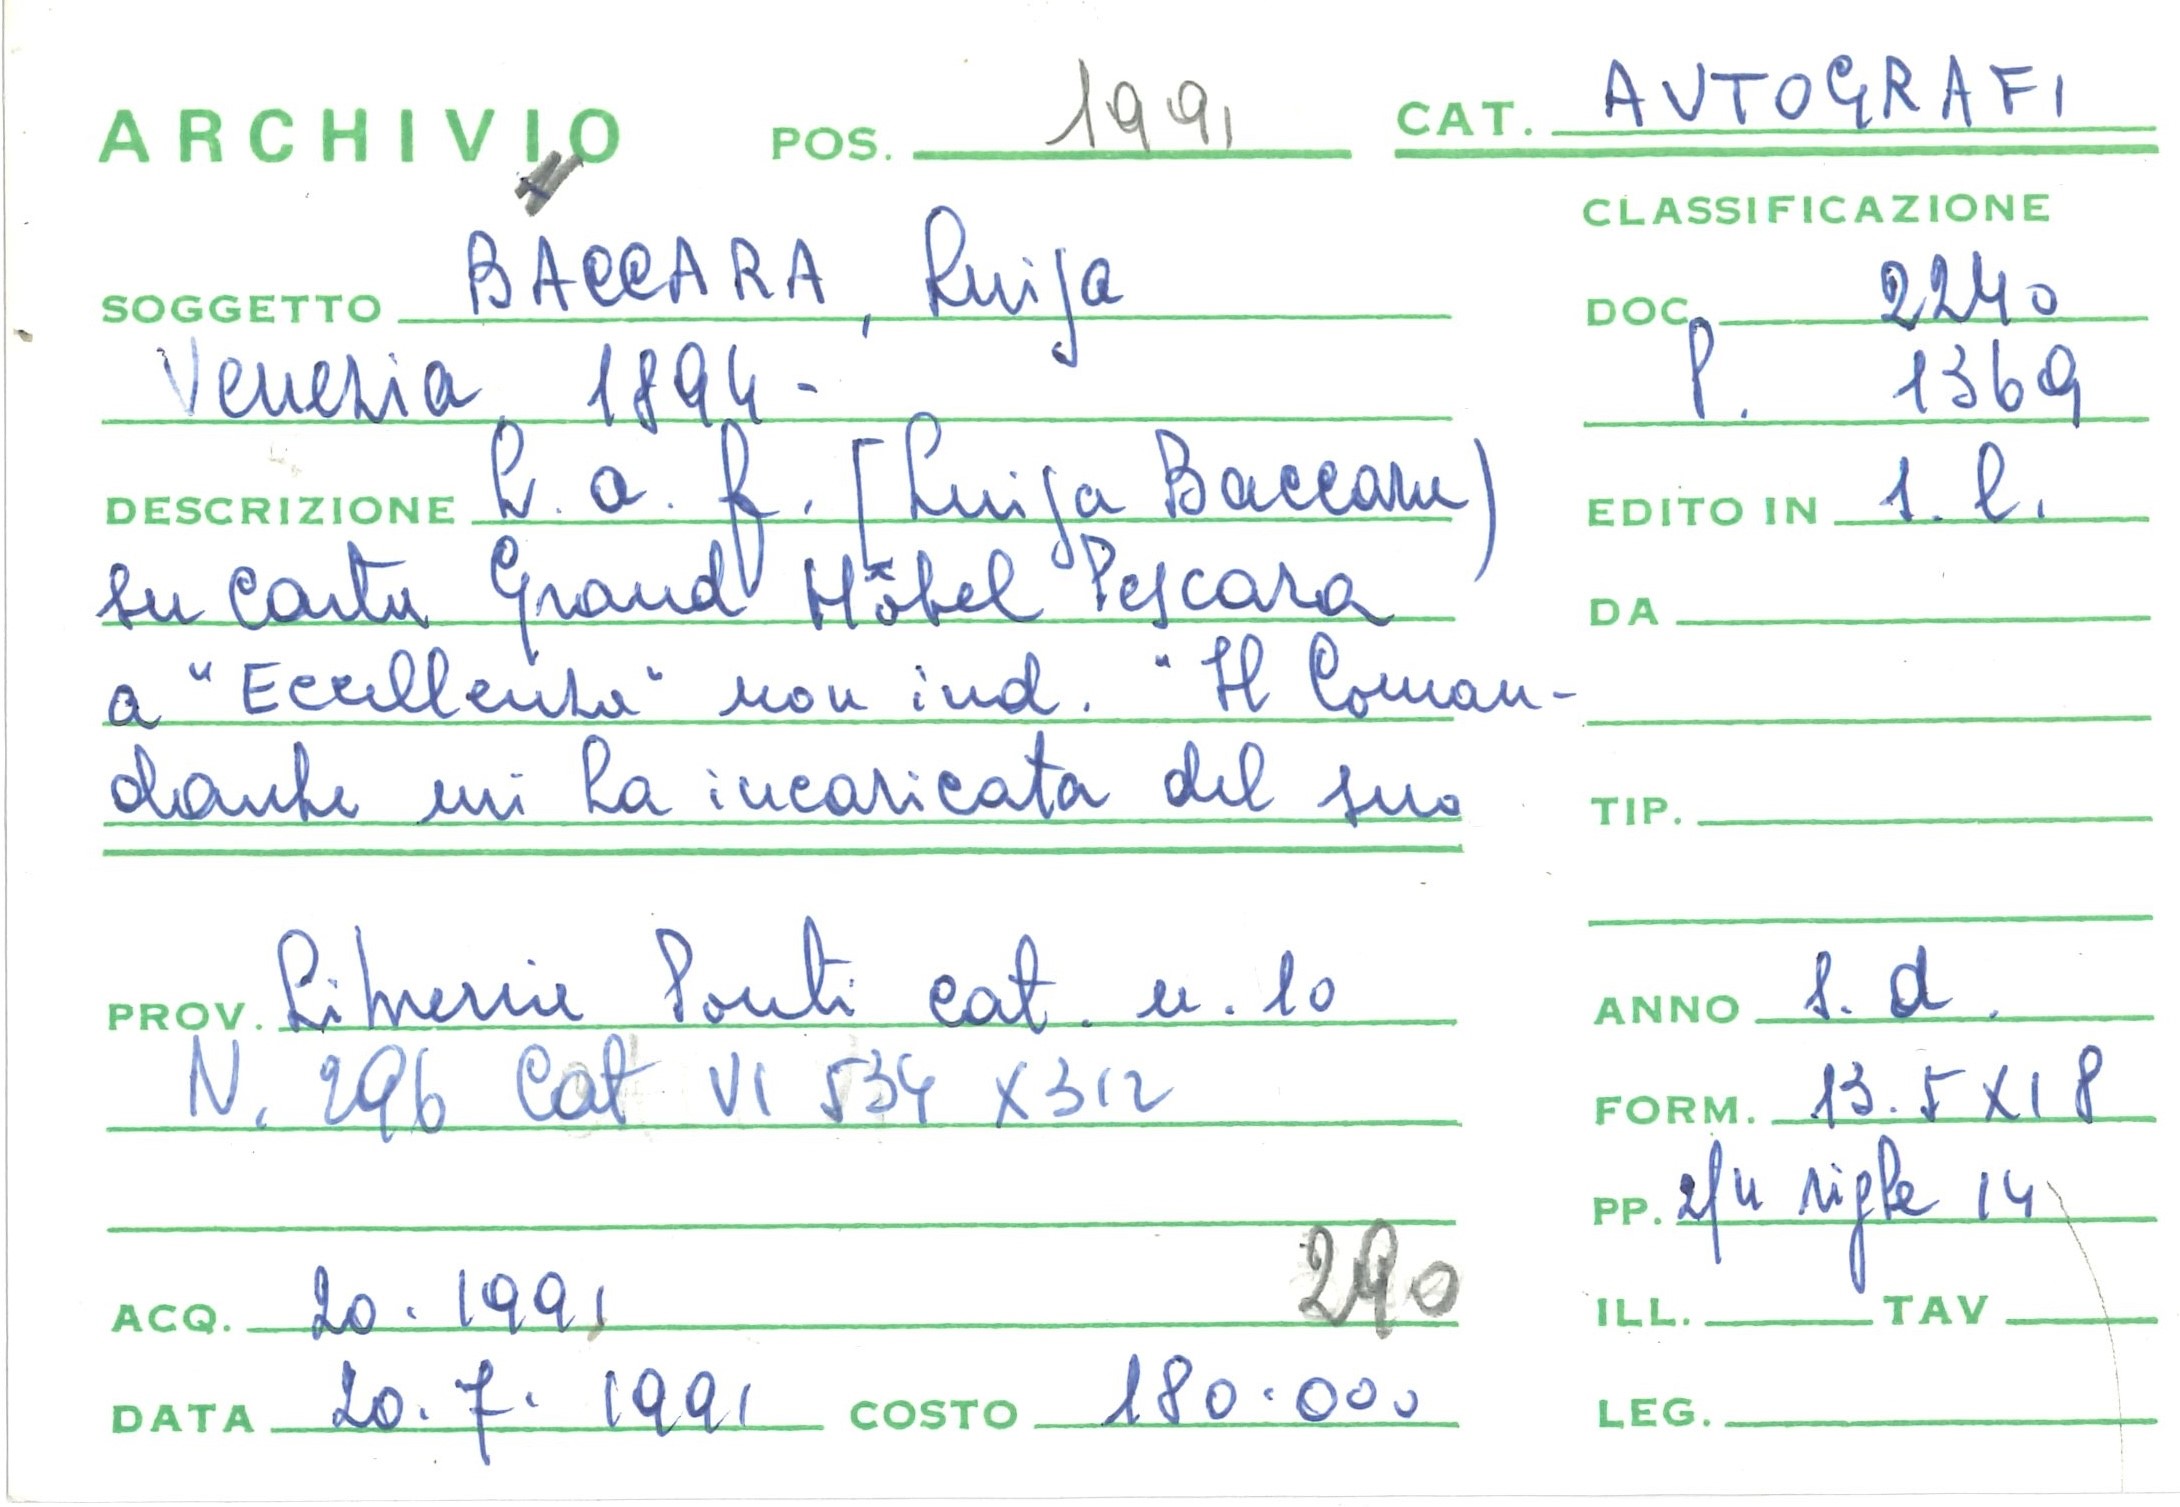 ARCHIVIO POS. 1991 CAT. AUTOGRAFI
CLASSIFICAZIONE
SOGGETTO BACCARA, Luisa
DOC. 2240
Venezia 1894-
P. 1369
DESCRIZIONE L. a. f. [Luisa Baccara)
EDITO IN s. l.
su carta Grand Hôtel Pescara
DA
a "Eccellenza" non ind. "Il Coman-
dante mi ha incaricata del suo
TIP.
PROV. Librerie Ponti cat. n. 10
ANNO s. d.
N. 296 Cat VI 534 X312
FORM. 13.5 X 18
PP. righe 14
290
ACQ. 20. 1991
ILL. TAV
DATA 20. 7. 1991 COSTO 180.000
LEG.